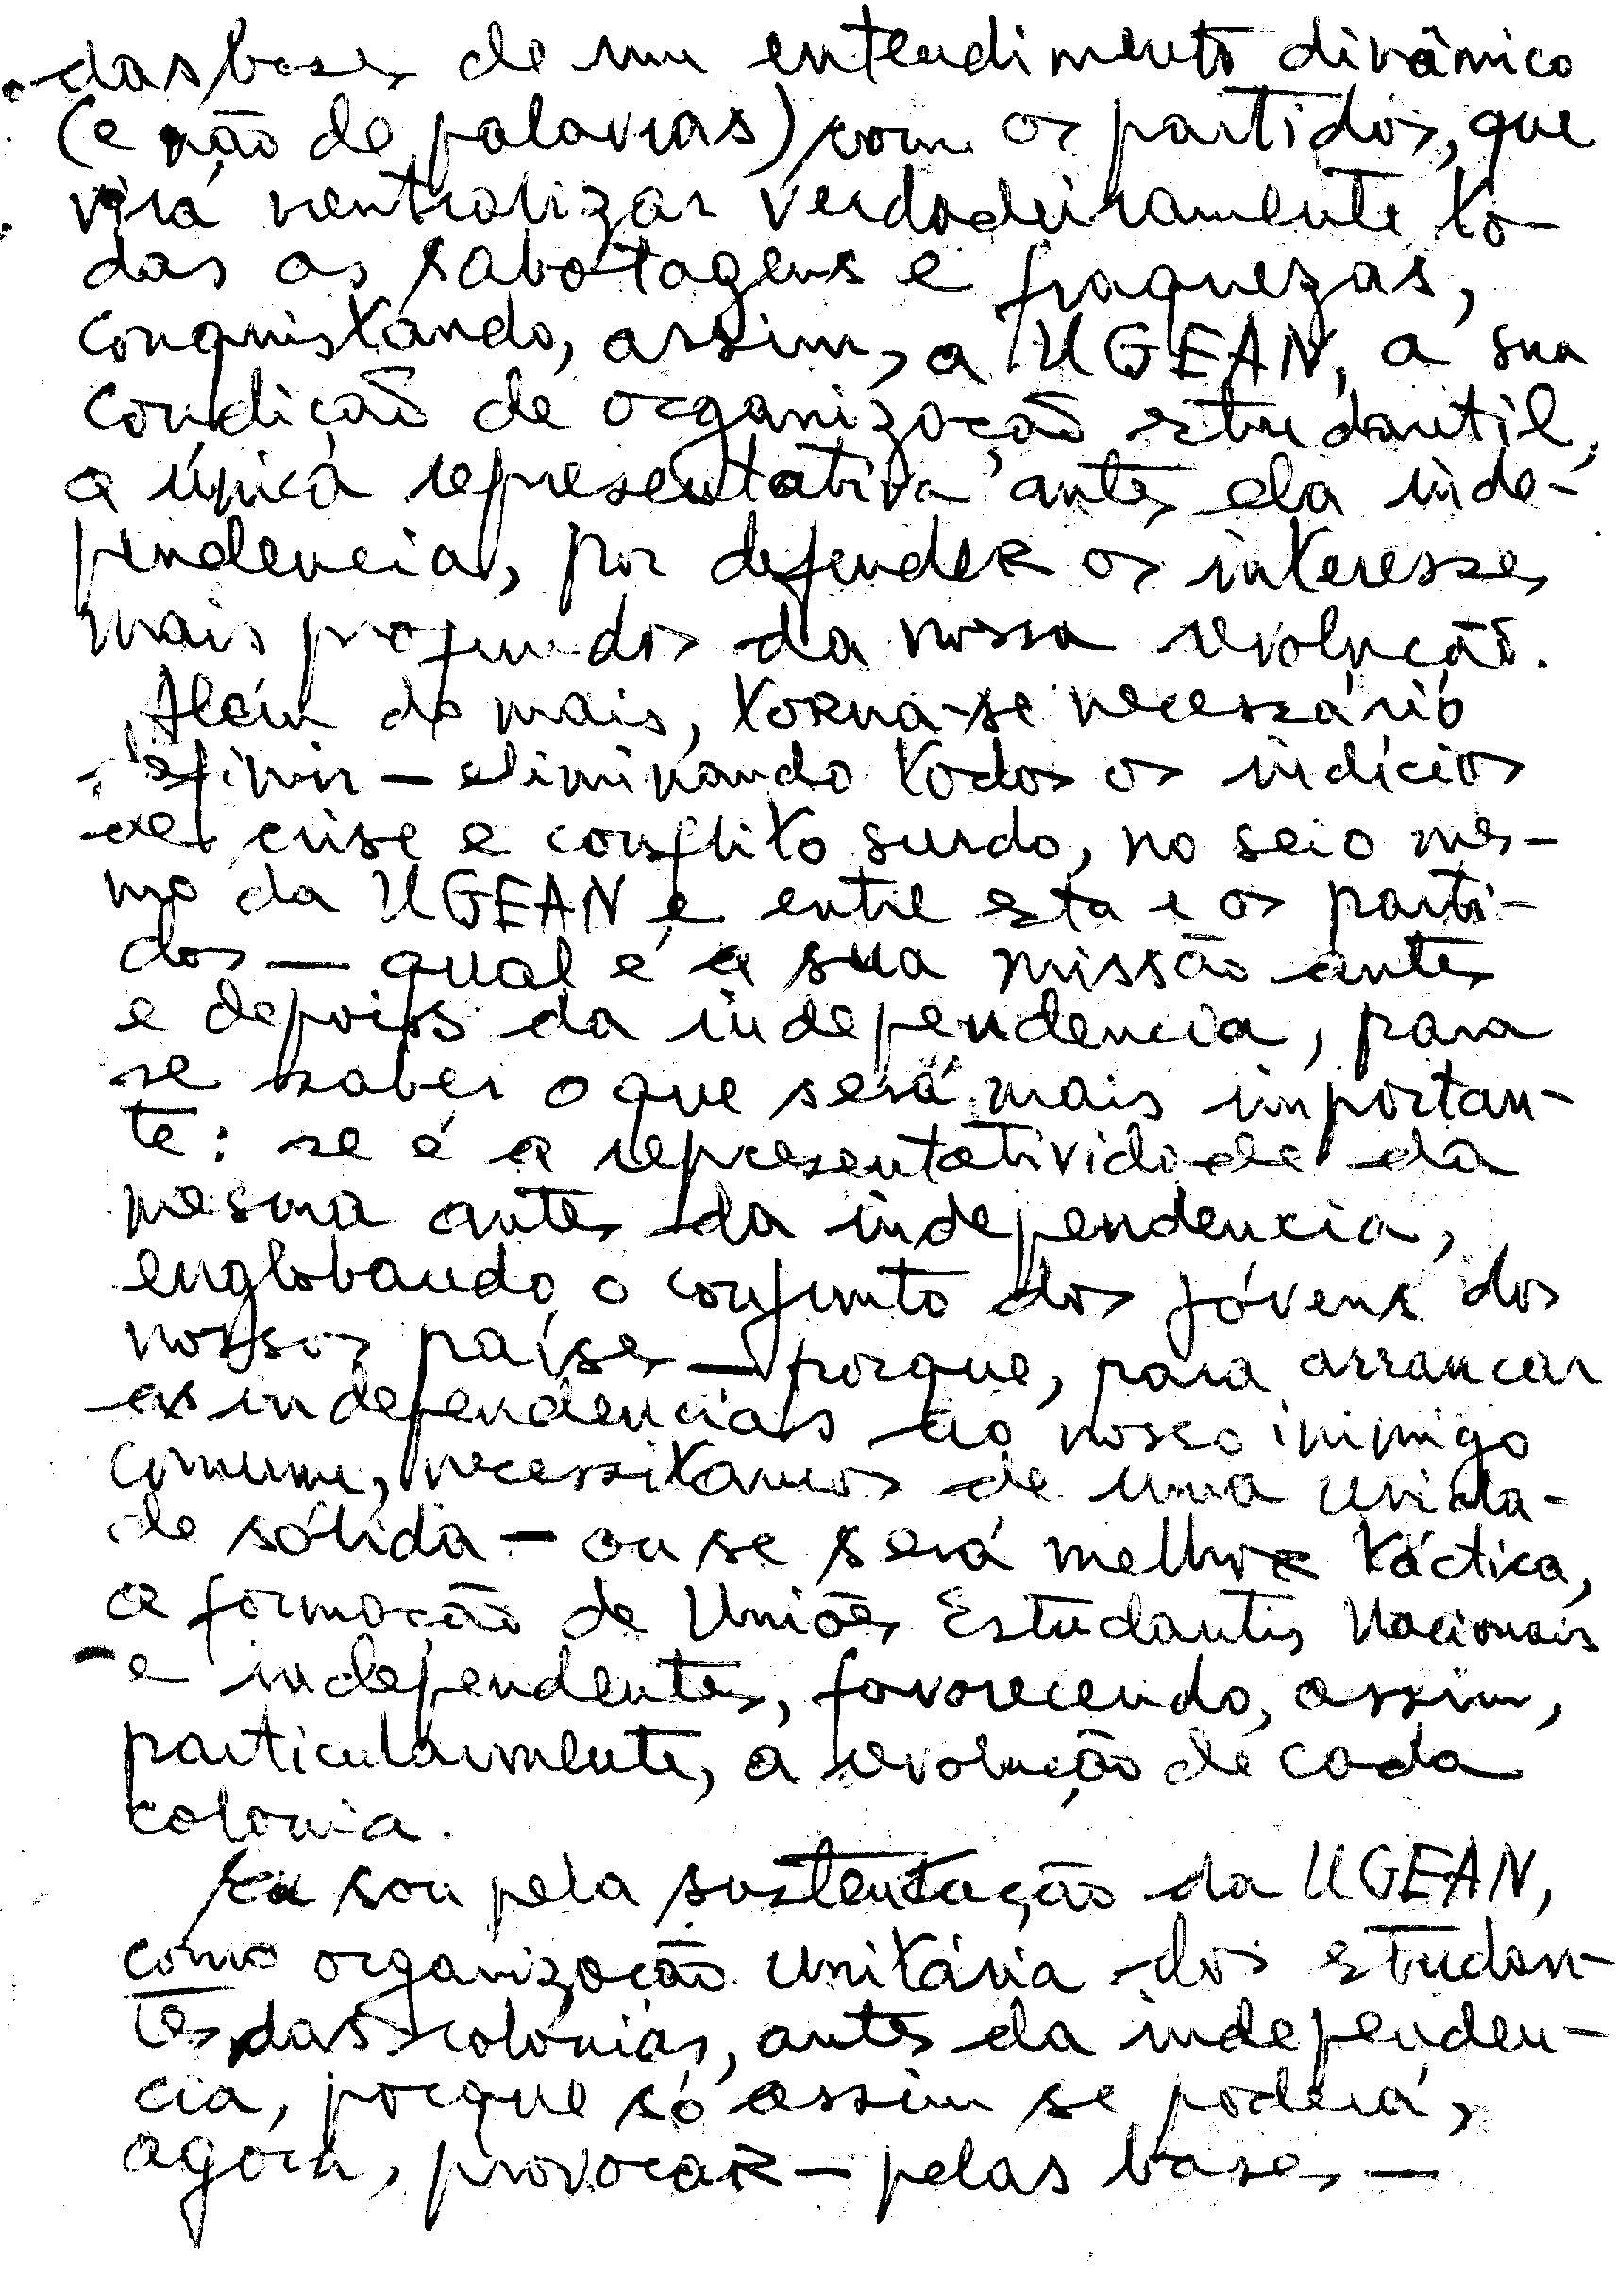 das bases de um entendimento dinâmico
(e não de palavras) com os partidos, que
virá neutralizar verdadeiramente to-
das as sabotagens e fraquezas,
conquistando, assim, a UGEAN, a sua
condição de organização estudantil,
a única representativa antes da inde-
pendencia, por defender os interesses
mais profundos da nossa revolução.
Além do mais, torna-se necessário
definir — eliminando todos os indícios
de crise e conflito surdo, no seio mes-
mo da UGEAN e entre esta e os parti-
dos — qual é a sua missão antes
e depois da independencia, para
se saber o que será mais importan-
te: se é a representatividade da
mesma antes da independencia,
englobando o conjunto dos jóvens dos
nossos países — porque, para arrancar
as independencias ao nosso inimigo
comum, necessitamos de uma unida-
de sólida — ou se será melhor táctica,
a formação de Uniões Estudantis Nacionais
e independentes, favorecendo, assim,
particularmente, a revolução de cada
colonia.
Eu sou pela sustentação da UGEAN,
como organização unitária dos estudan-
tes das colónias, antes da independen-
cia, porque só assim se poderá,
agora, provocar — pelas bases —